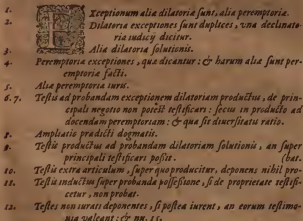 1. EXceptionum alia dilatoria sunt, alia peremptoria.
2. Dilatoria exceptiones sunt duplices, vna declinatoria iudicij dicitur.
3. Alia dilatoria solutionis.
4. Peremptoria exceptiones, qua dicantur: & harum alia sunt peremptoria facti.
5. Alia peremptoria iuris.
6. 7. Testis ad probandam exceptionem dilatoriam productus, de principali negotio non potest testificari: secus in producto ad docendam peremptoriam: & qua sit diuersitatis ratio.
8. Ampliatio pradicti dogmatis.
9. Testis productus ad probandum dilatoriam solutionis, an super principali testificari possit. (bat.
10. Testis extra articulum, super quo producitur, deponens nihil pro-
11. Testis inductus super probanda possessione, si de proprietate testificetur, non probat.
12. Testes non iurati deponentes, si postea iurent, an eorum testimonia valeant: & nu. 15.